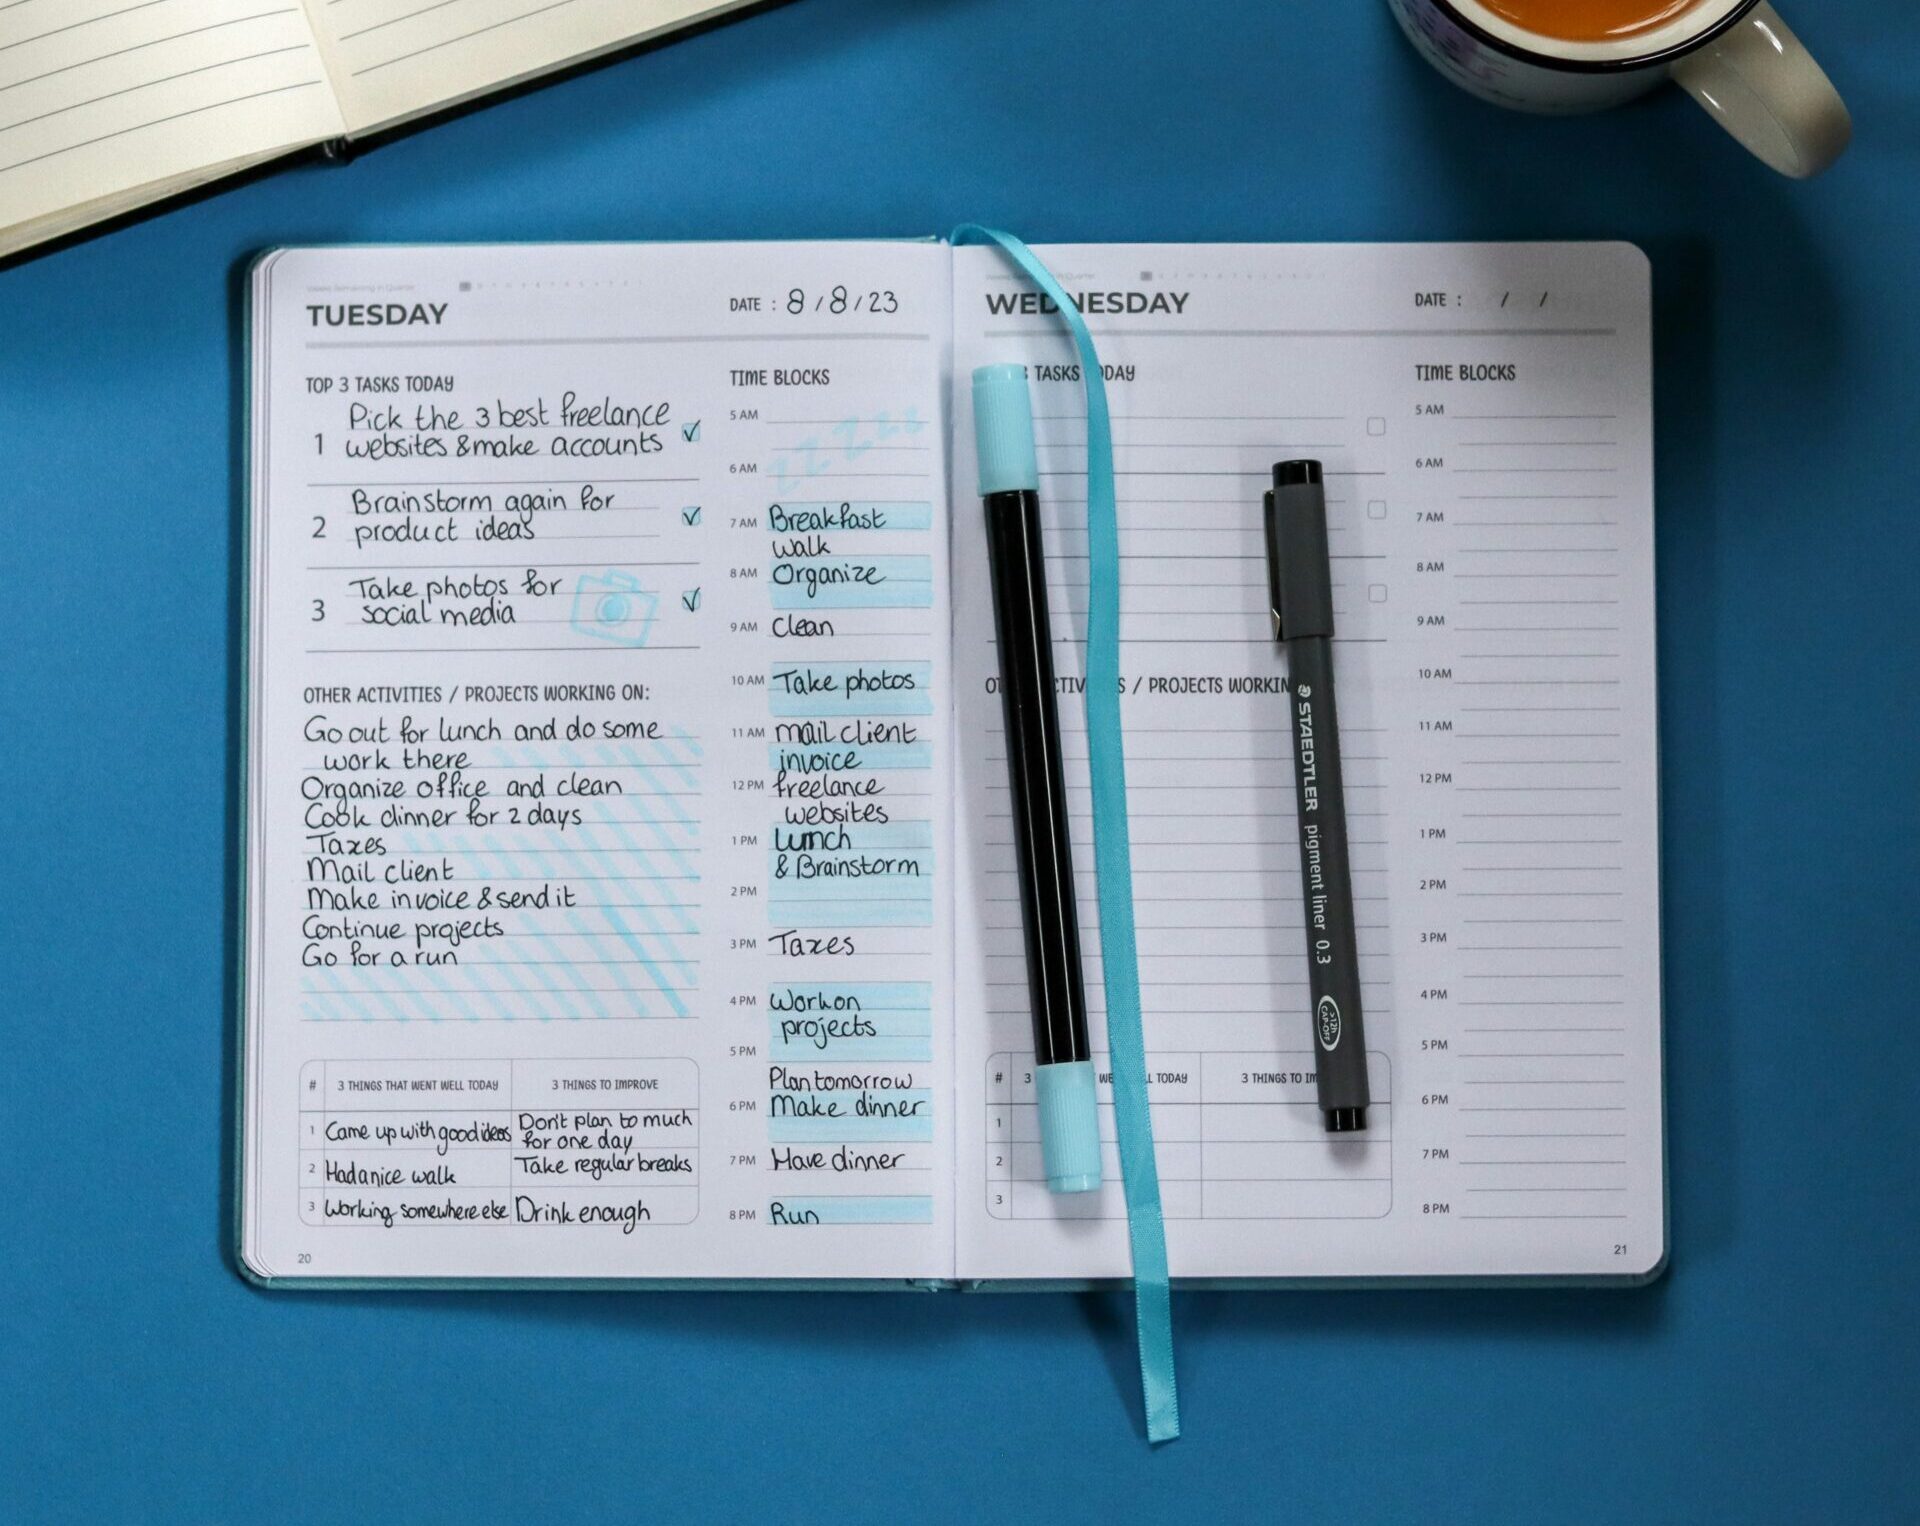 TUESDAY
DATE : 8 / 8 / 23
TOP 3 TASKS TODAY
1
Pick the 3 best freelance
websites & make accounts
2
Brainstorm again for
product ideas
3
Take photos for
social media
OTHER ACTIVITIES / PROJECTS WORKING ON:
Go out for lunch and do some
work there
Organize office and clean
Cook dinner for 2 days
Taxes
Mail client
Make invoice & send it
Continue projects
Go for a run
# 3 THINGS THAT WENT WELL TODAY 3 THINGS TO IMPROVE
1 Came up with good ideas Don't plan to much
for one day
2 Had a nice walk Take regular breaks
3 Working somewhere else Drink enough
20
TIME BLOCKS
5 AM
zzzzzz
6 AM
7 AM Breakfast
walk
8 AM Organize
9 AM Clean
10 AM Take photos
11 AM mail client
invoice
12 PM freelance
websites
1 PM Lunch
& Brainstorm
2 PM
3 PM Taxes
4 PM Work on
projects
5 PM
Plan tomorrow
6 PM Make dinner
7 PM Have dinner
8 PM Run
WEDNESDAY
DATE : / /
3 TASKS TODAY
/ PROJECTS WORKIN
# 3 WE L TODAY 3 THINGS TO IM
1
2
3
TIME BLOCKS
5 AM
6 AM
7 AM
8 AM
9 AM
10 AM
11 AM
12 PM
1 PM
2 PM
3 PM
4 PM
5 PM
6 PM
7 PM
8 PM
21
STAEDTLER pigment liner 0.3
>12h
CAP-OFF